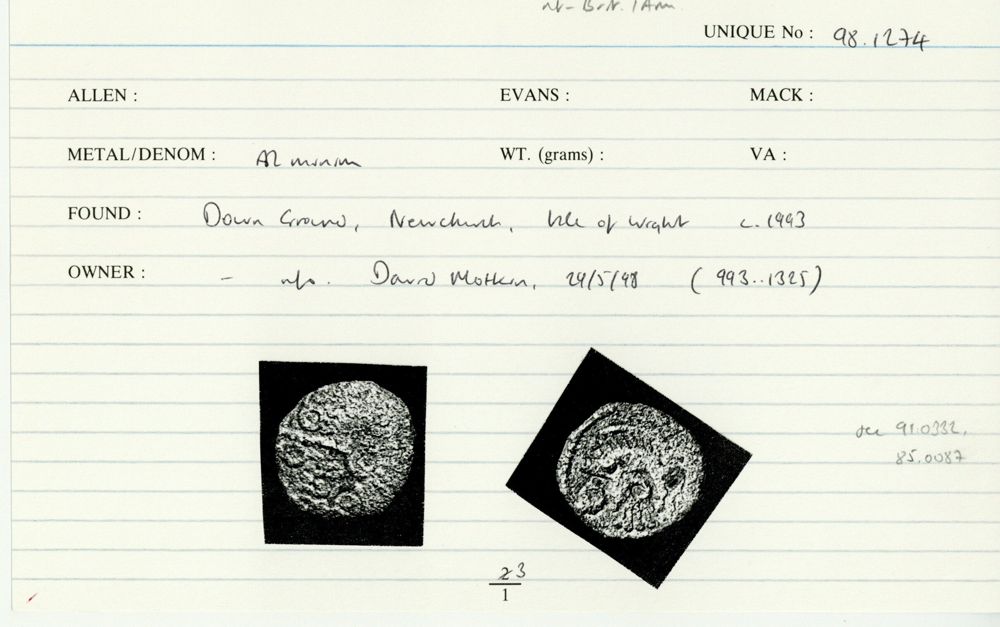 UNIQUE No : 98.1274
ALLEN : EVANS : MACK :
METAL/DENOM : AR minim WT. (grams) : VA :
FOUND : Down Ground, Newchurch, Isle of Wight c. 1993
OWNER : - info. David Motkin, 29/5/98 ( 993..1325)
see 91.0332,
85.0087
23
1